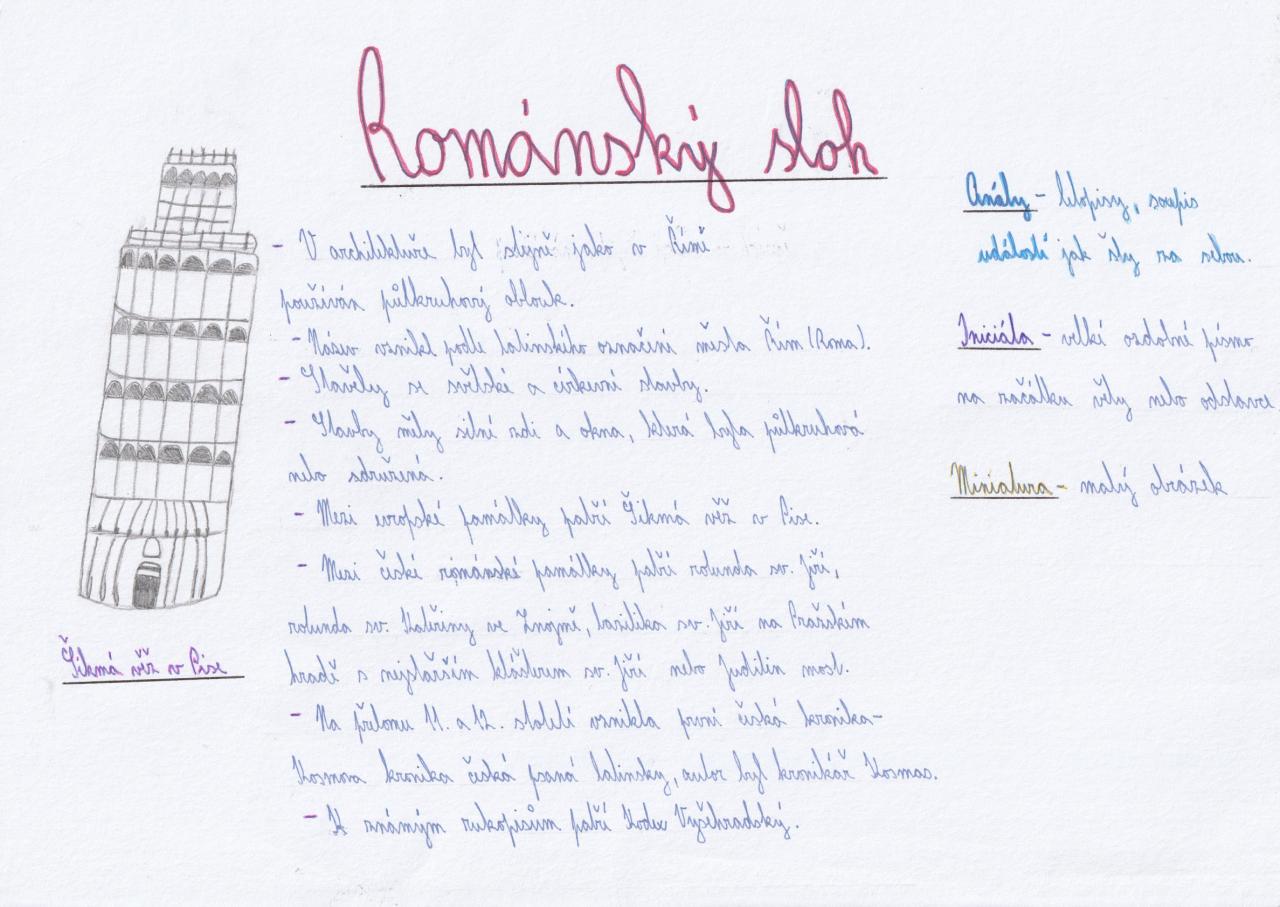 Románský sloh
- V architektuře byl stejně jako v Římě
používán půlkruhový oblouk.
- Název vznikl podle latinského označení města Řím (Roma).
- Stavěly se světské a církevní stavby.
- Stavby měly silné zdi a okna, která byla půlkruhová
nebo sdružená.
- Mezi evropské památky patří Šikmá věž v Pise.
- Mezi české románské památky patří rotunda sv. Jiří,
rotunda sv. Kateřiny ve Znojmě, bazilika sv. Jiří na Pražském
hradě s nejstarším klášterem sv. Jiří nebo Juditin most.
- Na přelomu 11. a 12. století vznikla první česká kronika-
Kosmova kronika česká psaná latinsky, autor byl kronikář Kosmas.
- K známým rukopisům patří Kodex Vyšehradský.
Šikmá věž v Pise
Anály - letopisy, soupis
událostí jak šly za sebou.
Iniciála - velké ozdobné písmo
na začátku věty nebo odstavce
Miniatura - malý obrázek